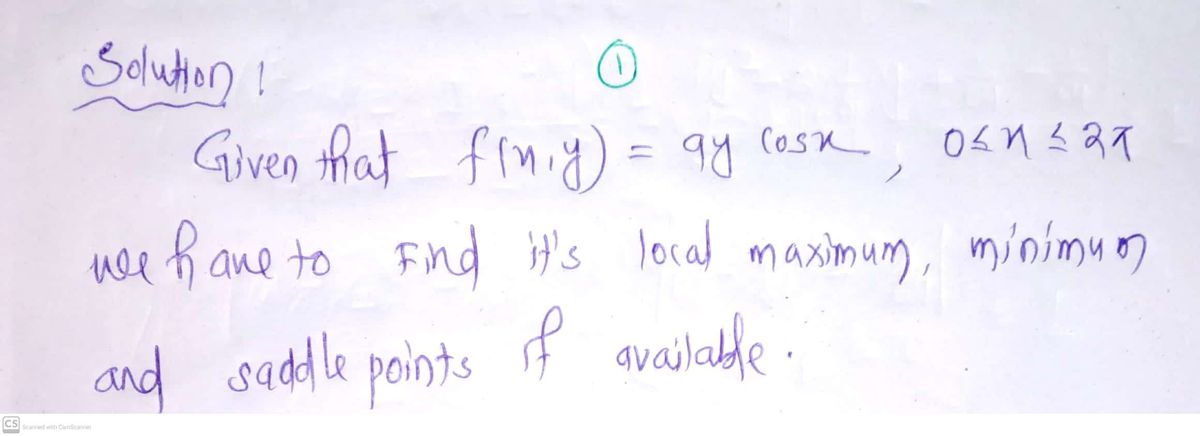 Solution :
①
Given that f(x,y) = 9y cosx , 0≤x≤2π
we have to Find it's local maximum, minimum
and saddle points if available.
CS Scanned with CamScanner